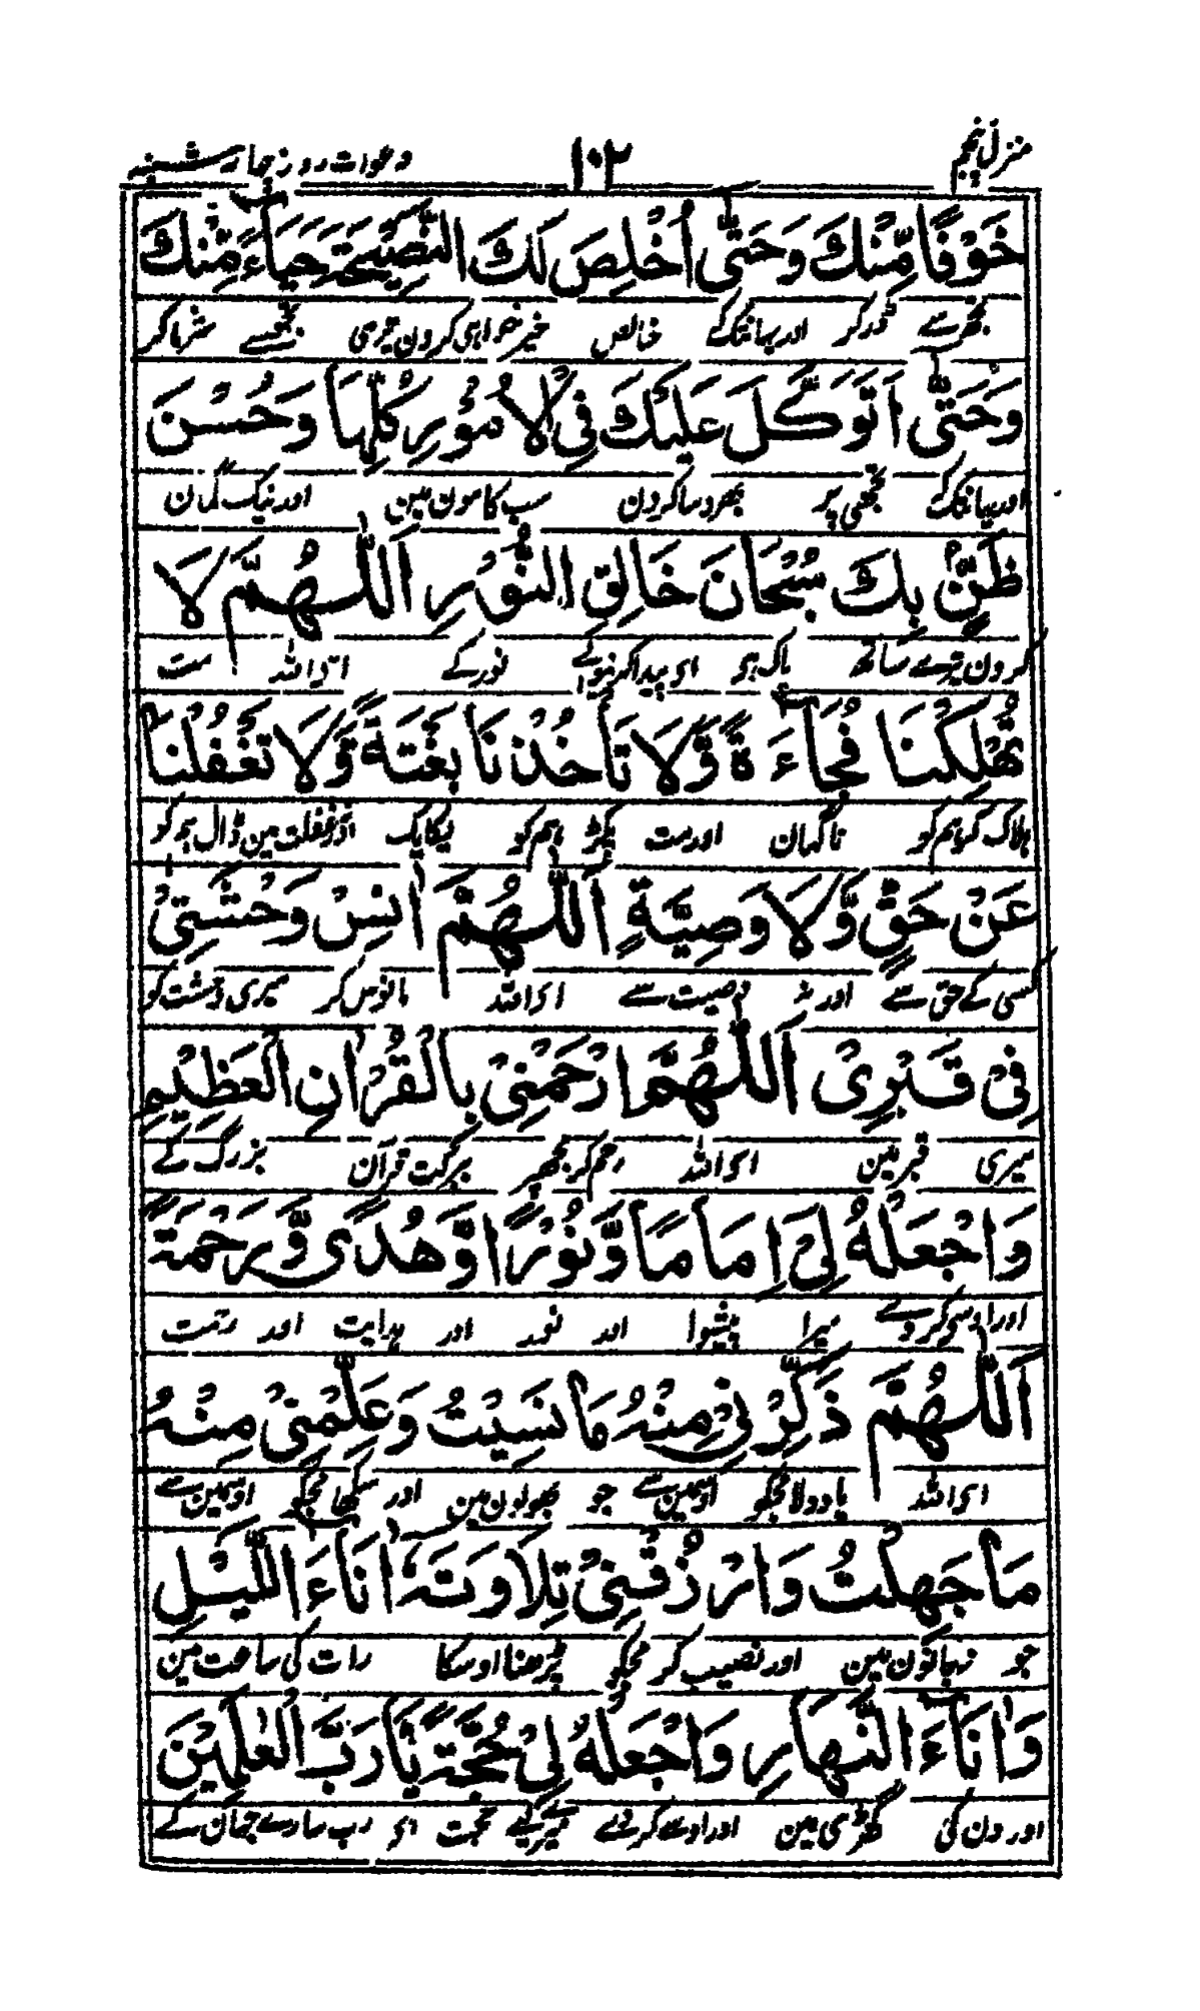 منزل پنجم ۱۰۲ دعوات روز چهار شنبه
خَوْفًا مِّنْكَ وَحَتّٰى اُخْلِصَ لَكَ النَّصِيْحَةَ حَيَآءً مِّنْكَ
تجھ سے ڈر کر اور یہانتک کے خالص خیر خواہی کرون تیری تجھسے شرما کر
وَحَتّٰى اَتَوَكَّلَ عَلَيْكَ فِى الْاُمُوْرِ كُلِّهَا وَحُسْنَ
اور یہانتک کے تجھی پر بھروسا کرون سب کامون مین اور نیک گمان
ظَنٍّۢ بِكَ سُبْحَانَ خَالِقِ النُّوْرِ اَللّٰهُمَّ لَا
کرون تیرے ساتھ پاک ہو ای پیدا کرنیوالے نور کے ای اللہ مت
تُهْلِكْنَا فُجَآءَةً وَّلَا تَأْخُذْنَا بَغْتَةً وَّلَا تَغْفُلْنَا
ہلاک کر ہم کو ناگہان اور مت پکڑ ہم کو یکایک اور غفلت مین ڈال ہم کو
عَنْ حَقٍّ وَّلَا وَصِيَّةٍ اَللّٰهُمَّ اٰنِسْ وَحْشَتِىْ
کسی کے حق سے اور نہ وصیت سے ای اللہ مانوس کر میری وحشت کو
فِىْ قَبْرِىْ اَللّٰهُمَّ ارْحَمْنِىْ بِالْقُرْاٰنِ الْعَظِيْمِ
میری قبر مین ای اللہ رحم کر مجھپر ببرکت قرآن بزرگ کے
وَاجْعَلْهُ لِىْ اِمَامًا وَّنُوْرًا وَّهُدًى وَّرَحْمَةً
اور اوسکو کر دے میرا پیشوا اور نور اور ہدایت اور رحمت
اَللّٰهُمَّ ذَكِّرْنِىْ مِنْهُ مَا نَسِيْتُ وَعَلِّمْنِىْ مِنْهُ
ای اللہ یاد دلا مجکو اوسمین سے جو بھولون مین اور سکھا مجکو اوسمین سے
مَا جَهِلْتُ وَارْزُقْنِىْ تِلَاوَتَهٗ اٰنَآءَ اللَّيْلِ
جو نہ جانون مین اور نصیب کر مجکو پڑھنا اوسکا رات کی ساعت مین
وَاٰنَآءَ النَّهَارِ وَاجْعَلْهُ لِىْ حُجَّةً يَّا رَبَّ الْعٰلَمِيْنَ
اور دن کی گھڑی مین اور اوسے کر دے میرے لیے حجت ای رب سارے جہان کے